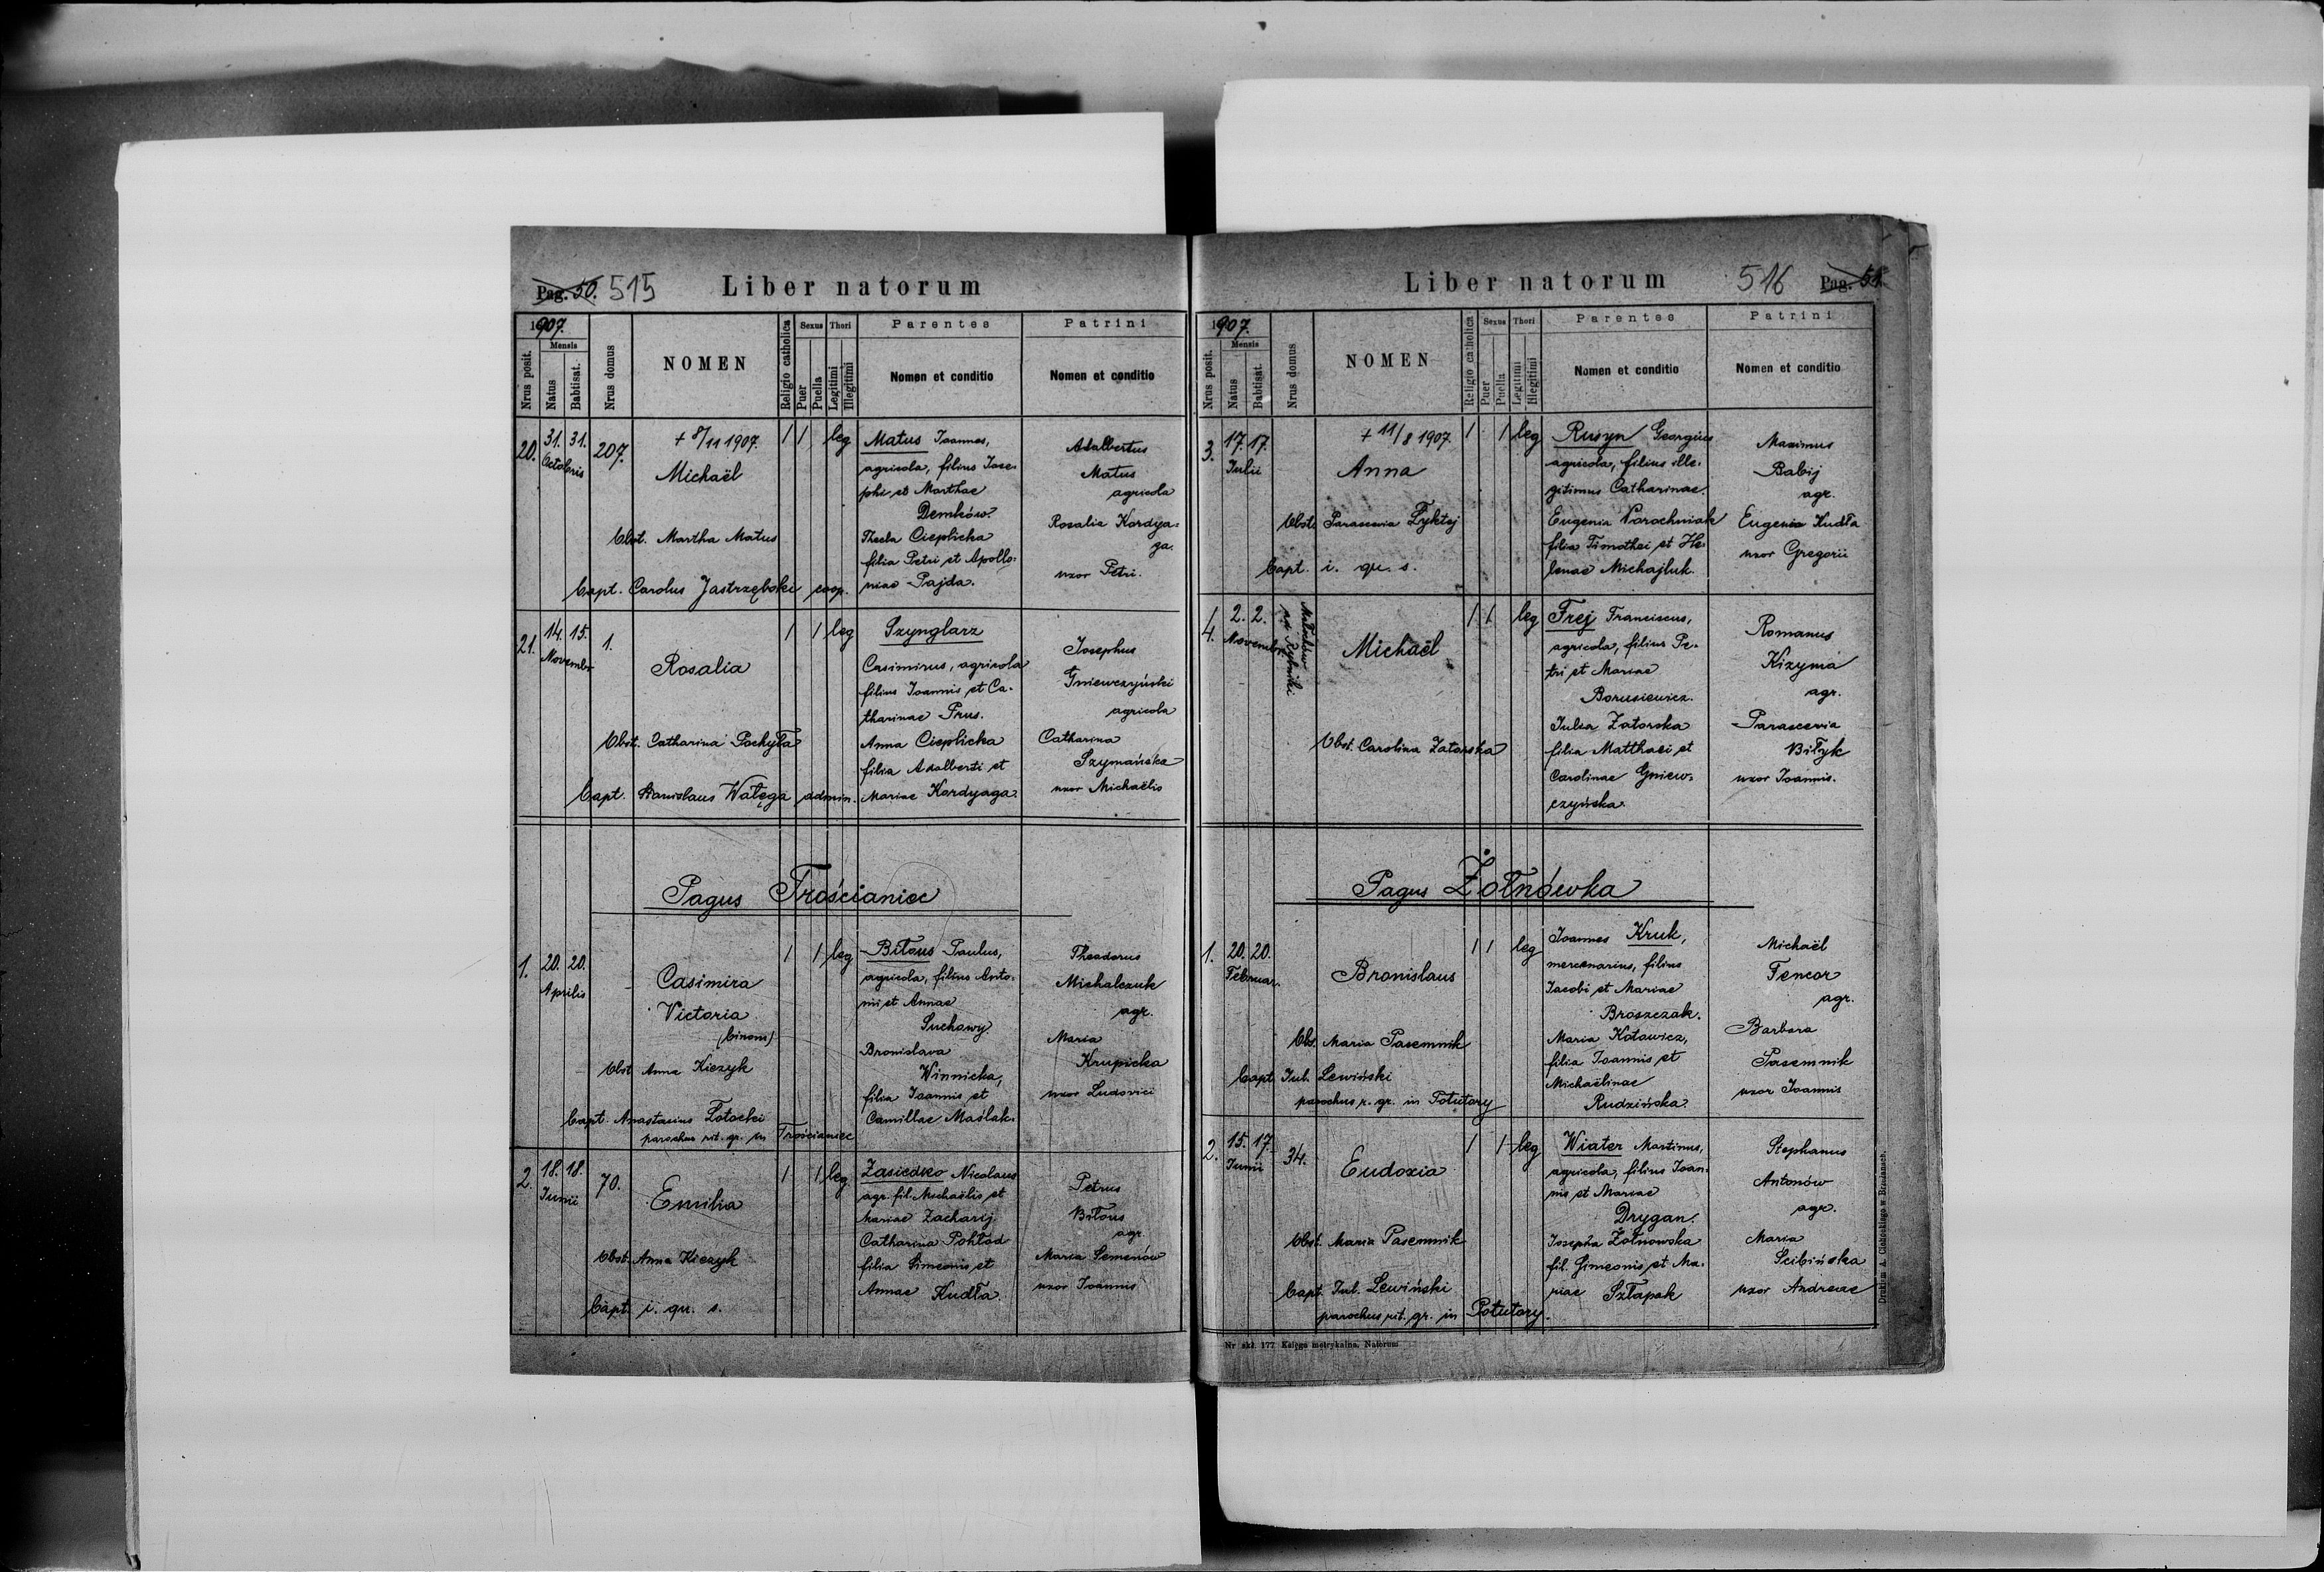 Pag. 50. 515
Liber natorum
1907.
Nrus posit.
Mensis
Natus
Babtisat.
Nrus domus
NOMEN
Religio catholica
Sexus
Puer
Puella
Thori
Legitimi
Illegitimi
Parentes
Nomen et conditio
Patrini
Nomen et conditio
20.
31. 31.
Octobris
207.
+ 8/11 1907.
Michaël
Obst. Martha Matus
bapt. Carolus Jastrzębski coop.
1 1 leg
Matus Joannes,
agricola, filius Jose-
phi et Marthae
Demków.
Thecla Cieplicka
filia Petri et Apollo-
niae Pajda.
Adalbertus
Matus
agricola
Rosalia Kordya-
ga.
uxor Petri.
21.
14. 15.
Novembr
1.
Rosalia
Obst. Catharina Pochyła
bapt. Stanislaus Wałęga admin.
1 1 leg
Szynglarz
Casimirus, agricola
filius Joannis et Ca-
tharinae Prus.
Anna Cieplicka
filia Adalberti et
Mariae Kordyaga.
Josephus
Gniewczyński
agricola
Catharina
Szymańska
uxor Michaëlis
Pagus Trościaniec
1.
20. 20.
Aprilis
Casimira
Victoria
(binom)
Obst Anna Kiczyk
bapt. Anastasius Totocki
parochus rit. gr. in Trościaniec
1 1 leg
Biłous Paulus,
agricola, filius Anto-
nii et Annae
Suchowy.
Bronislava
Winnicka,
filia Joannis et
Camillae Maślak.
Theodorus
Michalczuk
agr.
Maria
Krupicka
uxor Ludovici
2.
18. 18.
Junii
70.
Emilia
Obst. Anna Kiczyk
bapt. i. qu. s.
1 1 leg
Zasiedko Nicolaus
agr. fil. Michaëlis et
Mariae Zacharij
Catharina Pohład
filia Simeonis et
Annae Kudła.
Petrus
Biłous
agr
Maria Semenów
uxor Joannis
Liber natorum
516 Pag. 51.
1907.
Nrus posit.
Mensis
Natus
Babtisat.
Nrus domus
NOMEN
Religio catholica
Sexus
Puer
Puella
Thori
Legitimi
Illegitimi
Parentes
Nomen et conditio
Patrini
Nomen et conditio
3.
17. 17.
Julii
+ 11/8 1907.
Anna
Obst. Parascevia Łyktej
bapt. i. qu. s.
1 1 leg
Rusyn Georgius
agricola, filius ille-
gitimus Catharinae.
Eugenia Porochniak
filia Timothei et He-
lenae Michajluk.
Maximus
Babij
agr.
Eugenia Kudła
uxor Gregorii
4.
2. 2.
Novembr.
Michaël
Obst. Carolina Zatorska
1 1 leg
Frej Franciscus,
agricola, filius Pe-
tri et Mariae
Borusiewicz.
Julia Zatorska
filia Matthaei et
Carolinae Gniew-
czyńska.
Romanus
Kizyma
agr.
Parascevia
Biłyk
uxor Joannis.
Pagus Żołnówka
1.
20. 20.
Februar.
Bronislaus
Obs. Maria Pasemnik
bapt Jul. Lewiński
parochus r. gr. in Potutory
1 1 leg
Joannes Kruk,
mercenarius, filius
Jacobi et Mariae
Broszczak.
Maria Kotowicz,
filia Joannis et
Michaëlinae
Rudzińska.
Michaël
Fencor
agr.
Barbara
Pasemnik
uxor Joannis
2.
15. 17.
Junii
34.
Eudoxia
Obst. Maria Pasemnik
bapt. Jul. Lewiński
parochus rit. gr. in Potutory.
1 1 leg
Wiater Martinus,
agricola, filius Joan-
nis et Mariae
Drygan.
Josepha Żołnowska
fil. Simeonis et Ma-
riae Szłapak
Stephanus
Antonów
agr.
Maria
Scibińska
uxor Andreae
Nr skł. 177 Księga metrykalna. Natorum
Drukiem A. Cichockiego w Brzeżanach.